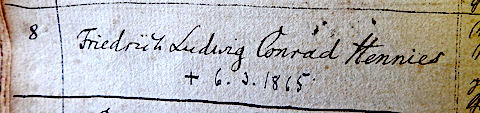 8 Friedrich Ludwig Conrad Hennies
+ 6. 3. 1865